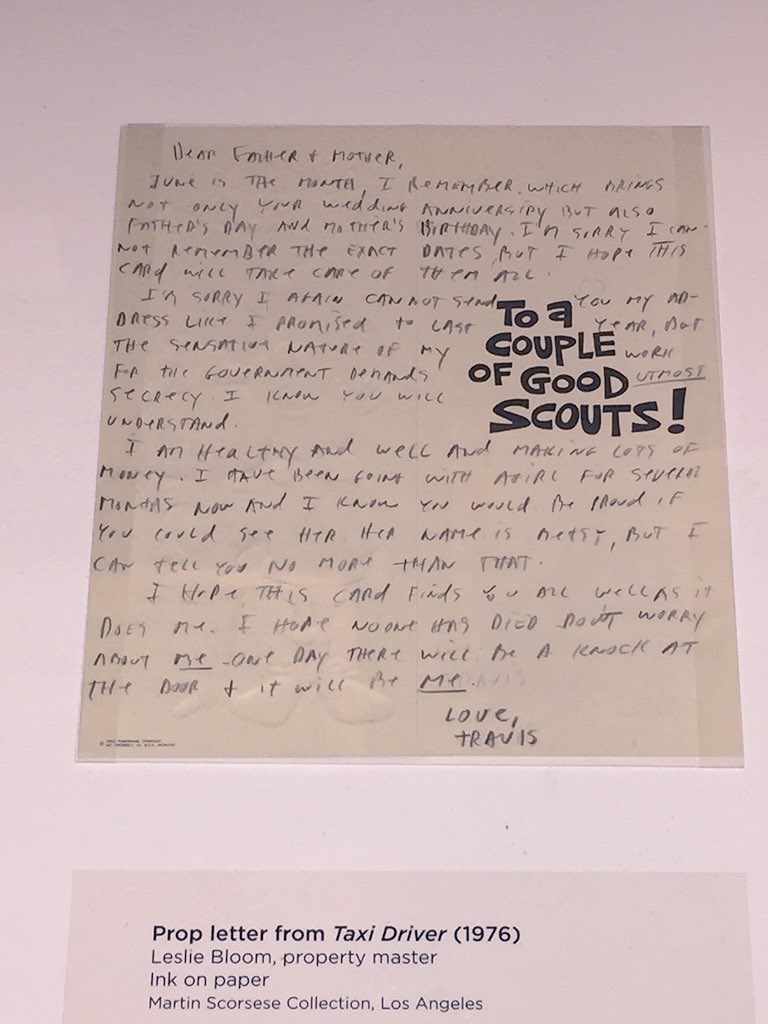 Dear Father + Mother,
June is the month, I remember, which brings
not only your wedding anniversipy but also
Father's Day and Mother's Birthday. I'm sorry I can-
not remember the exact dates, but I hope this
card will take care of them all.
I'm sorry I again cannot send you my ad-
dress like I promised to last year, but
the sensative nature of my work
for the government demands utmost
secrecy. I know you will
understand.
To a
COUPLE
OF GOOD
SCOUTS!
I am healthy and well and making lots of
money. I have been going with a girl for several
months now and I know you would be proud if
you could see her. Her name is Betsy, but I
can tell you no more than that.
I hope this card finds you all well as it
does me. I hope no one has died. Don't worry
about me. One day there will be a knock at
the door + it will be me.
Love,
Travis
Prop letter from Taxi Driver (1976)
Leslie Bloom, property master
Ink on paper
Martin Scorsese Collection, Los Angeles